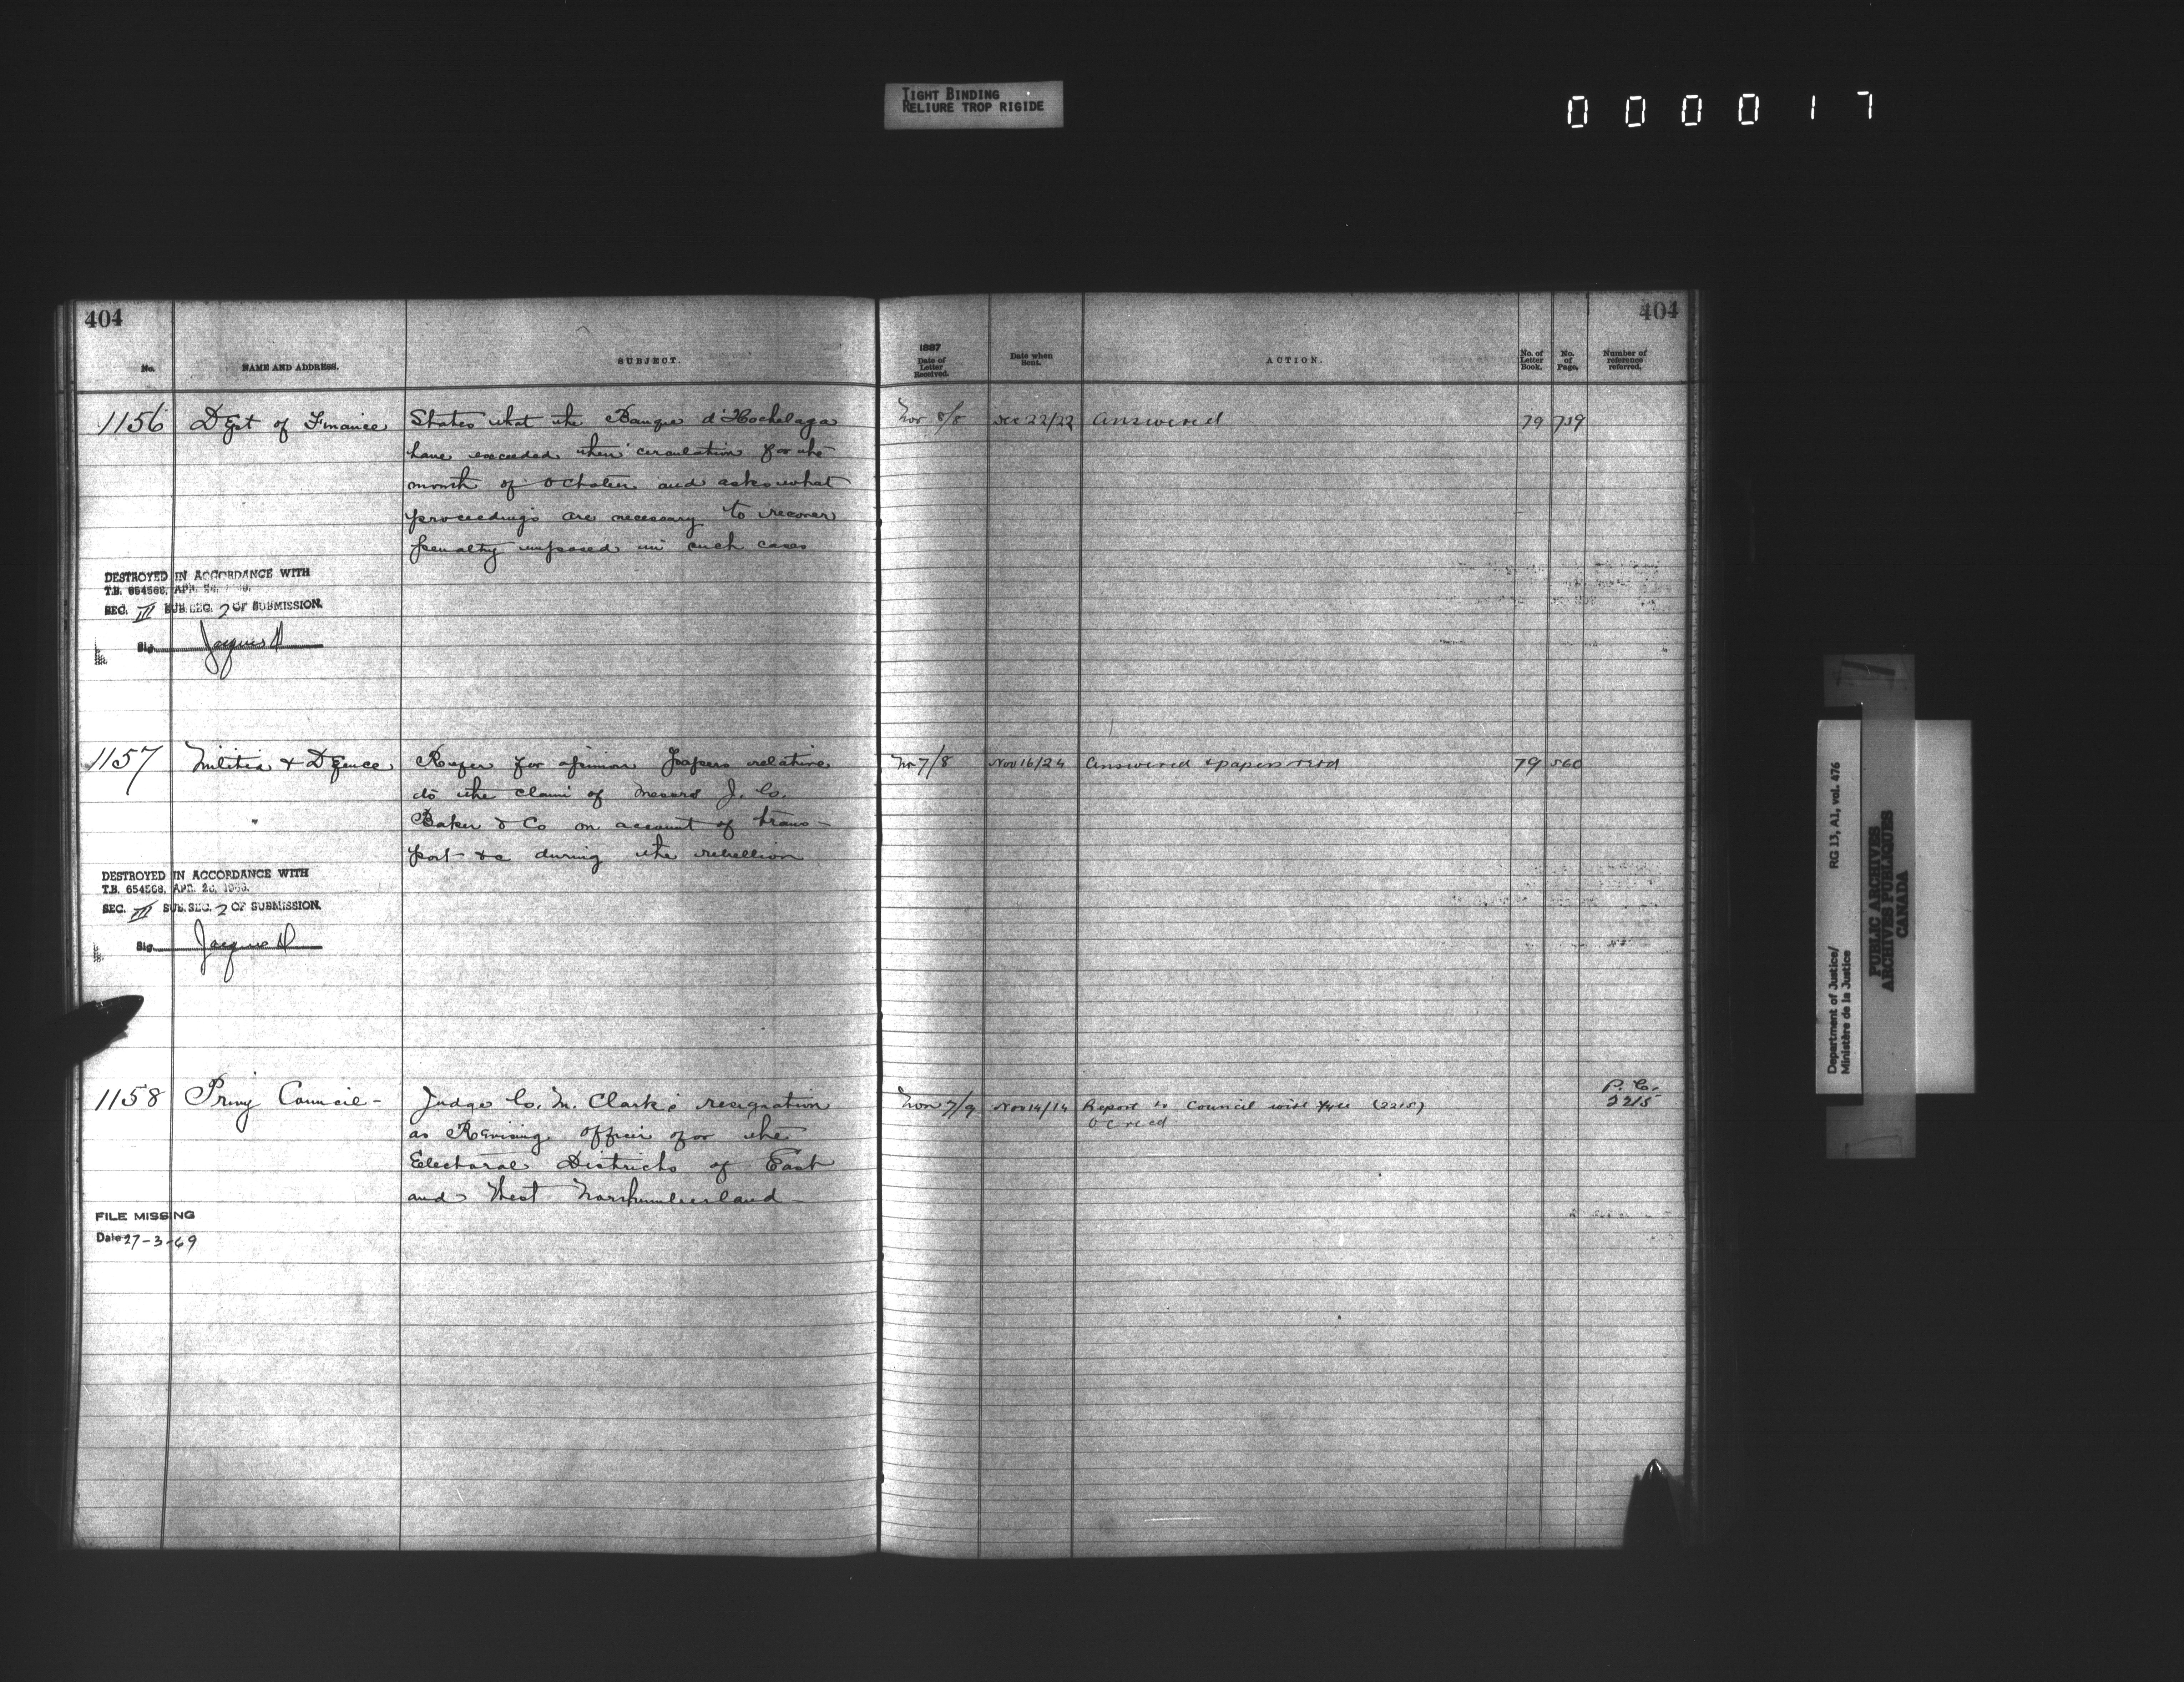 TIGHT BINDING
RELIURE TROP RIGIDE
000017
404
No.
NAME AND ADDRESS.
SUBJECT.
1887
Date of
Letter
Received.
Date when
Sent.
ACTION.
No. of
Letter
Book.
No.
of
Page.
Number of
reference
referred.
404
1156 Dept of Finance States that the Banque d'Hochelaga
have exceeded their circulation for the
month of October and asks what
proceedings are necessary to recover
penalty imposed in such cases
Nov 8/8 Dec 22/22 Answered 79 759
DESTROYED IN ACCORDANCE WITH
T.B. 654568, APR. 26,
SEC. III SUB. SEC. 2 OF SUBMISSION.
Sig. Jacques D
1157 Militia & Defence Refer for opinion Papers relative
to the claim of Messrs J. C.
Baker & Co on account of trans-
port &c during the rebellion
Nov 7/8 Nov 16/24 Answered & papers retd 79 560
DESTROYED IN ACCORDANCE WITH
T.B. 654568, APR. 26, 1966.
SEC. III SUB. SEC. 2 OF SUBMISSION.
Sig. Jacques D
1158 Privy Council - Judge C. M. Clark's resignation
as Revising Officer for the
Electoral Districts of East
and West Northumberland
Nov 7/9 Nov 14/14 Report to Council with (2215)
OC recd
P.C.
2215
FILE MISSING
Date 27-3-69
Department of Justice/
Ministère de la Justice
RG 13, A1, vol. 476
PUBLIC ARCHIVES
ARCHIVES PUBLIQUES
CANADA